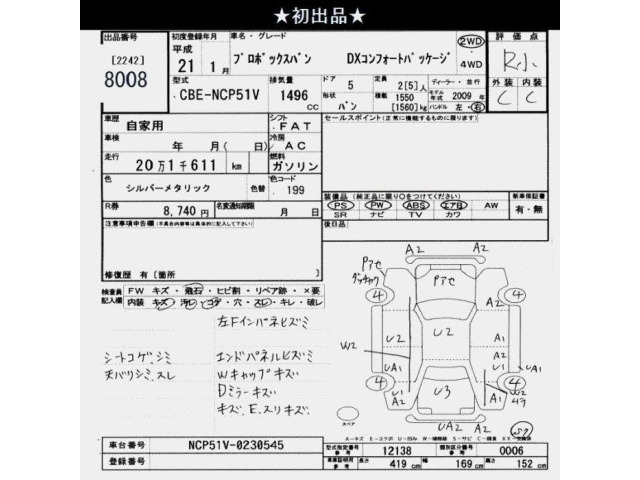 ★初出品★
出品番号
[2242]
8008
初度登録年月
平成
21年1月
車名・グレード
プロボックスバン DXコンフォートパッケージ
2WD
・4WD
評価点
R小
外装 内装
C C
型式
CBE-NCP51V
排気量
1496
CC
ドア
5
形状
バン
定員
2[5]人
積載
1550
[1560]kg
ディーラー・並行
モデル年式 2009 年
ハンドル 左・右
車歴
自家用
シフト
FAT
車検
年 月(日)
冷房
AC
走行
20万1千611 km
燃料
ガソリン
色
シルバーメタリック
色替
色コード
199
R券
8,740円
名変通知期限
月 日
セールスポイント(正常に機能するものに限ります)
装備品(純正品に限り○をつけてください)
PS PW ABS エアB AW
SR ナビ TV カワ
新車保証書
有・無
後日品
注意事項申告欄(不具合内容等は具体的に記入して下さい)
修復歴 有[箇所 ]
検査員記入欄
FW キズ・飛石・ヒビ割・リペア跡・×要
内装 キズ・汚レ・コゲ・穴・スレ・キレ・破レ
左Fインパネヒズミ
シートコゲ、シミ エンドパネルヒズミ
天バリシミ、スレ Wキャップキズ
Dミラーキズ
キズ、E、スリキズ
A2 A2
Pアセ
ダッチャク
Pアセ
4 4
A2
U2 U2 A1
W2
U1 A1 UA1
4 U3 U1 4
A1 A1 W2
UA2 A2
スペア
A-キズ E-エクボ U-凹み W-補修跡 S-サビ C-腐食 XX-交換済
車台番号
NCP51V-0230545
登録番号
型式指定番号
参考
12138
類別区分番号
参考
0006
車庫証明用
参考
長さ
419 cm
幅
169 cm
高さ
152 cm